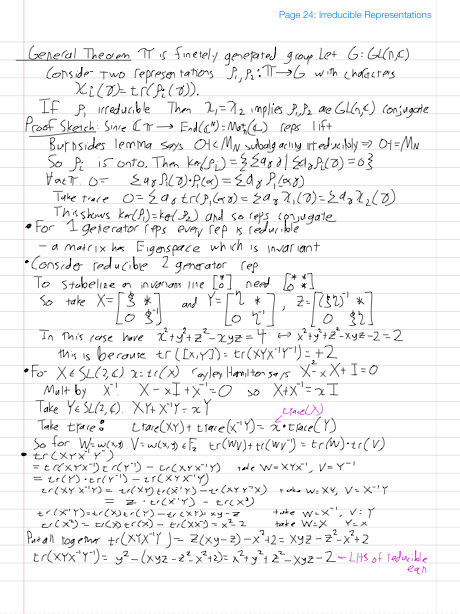 Page 24: Irreducible Representations
General Theorem π is finetely generated group. Let G = GL(n,C)
Consider two representations ρ₁,ρ₂: π→G with characters
χᵢ(γ) = tr(ρᵢ(γ)).
If ρ₁ irreducible Then χ₁=χ₂ implies ρ₁,ρ₂ are GL(n,C) conjugate
Proof Sketch: Since ℂπ → End(ℂⁿ)=Matₙ(ℂ) reps lift
Burnsides lemma says
So ρᵢ is onto. Then ker(ρᵢ) = {Σa_γ γ | Σa_γ ρᵢ(γ) = 0}
∀α∈π. 0 = Σa_γ ρᵢ(γ)·ρᵢ(α) = Σa_γ ρᵢ(αγ)
Take trace 0 = Σa_γ tr(ρᵢ(αγ)) = Σa_γ χ₁(γ) = Σa_γ χ₂(γ)
This shows ker(ρ₁) = ker(ρ₂) and so reps conjugate
• For 1 generator reps every rep is reducible
- a matrix has Eigenspace which is invariant
• Consider reducible 2 generator rep
To stabelize an invariant line [* 0] need [* * 0 *]
So take X = [ξ * 0 ξ⁻¹] and Y = [η * 0 η⁻¹], Z = [(ξη)⁻¹ * 0 ξη]
In this case have x²+y²+z²-xyz = 4 ↔ x²+y²+z²-xyz-2 = 2
this is because tr([X,Y]) = tr(XYX⁻¹Y⁻¹) = +2
• For X∈SL(2,C) x = tr(X) Cayley Hamilton says X²-xX+I=0
Mult by X⁻¹ X-xI+X⁻¹=0 so X+X⁻¹=xI
Take Y∈SL(2,C). XY+X⁻¹Y=xY
trace(X)
Take trace: trace(XY)+trace(X⁻¹Y) = x·trace(Y)
So for W=w(x,y) V=v(x,y)∈F₂ tr(WV)+tr(WV⁻¹) = tr(W)·tr(V)
• tr(XYX⁻¹Y⁻¹)
= tr(XYX⁻¹)tr(Y⁻¹) - tr(XYX⁻¹Y) take W=XYX⁻¹, V=Y⁻¹
= tr(Y)·tr(Y⁻¹) - tr(XYX⁻¹Y)
tr(XYX⁻¹Y) = tr(XY)tr(X⁻¹Y) - tr(XYY⁻¹X) take W=XY, V=X⁻¹Y
= z·tr(X⁻¹Y) - tr(X²)
tr(X⁻¹Y) = tr(X)tr(Y) - tr(XY) = xy-z take W=X⁻¹, V=Y
tr(X²) = tr(X)tr(X) - tr(XX⁻¹) = x²-2 take W=X Y=X
Put all together tr(XYX⁻¹Y) = z(xy-z)-x²+2 = xyz-z²-x²+2
tr(XYX⁻¹Y⁻¹) = y²-(xyz-z²-x²+2) = x²+y²+z²-xyz-2 - LHS of reducible
eqn